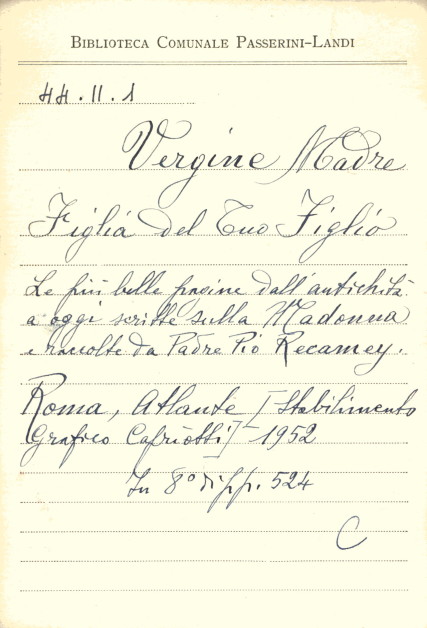 BIBLIOTECA COMUNALE PASSERINI-LANDI
44.II.1
Vergine Madre
Figlia del Tuo Figlio
Le più belle pagine dall'antichità
a oggi scritte sulla Madonna
e raccolte da Padre Pio Recamey.
Roma, Atlante [Stabilimento
Grafico Capriotti] - 1952
In 8° di pp. 524
C